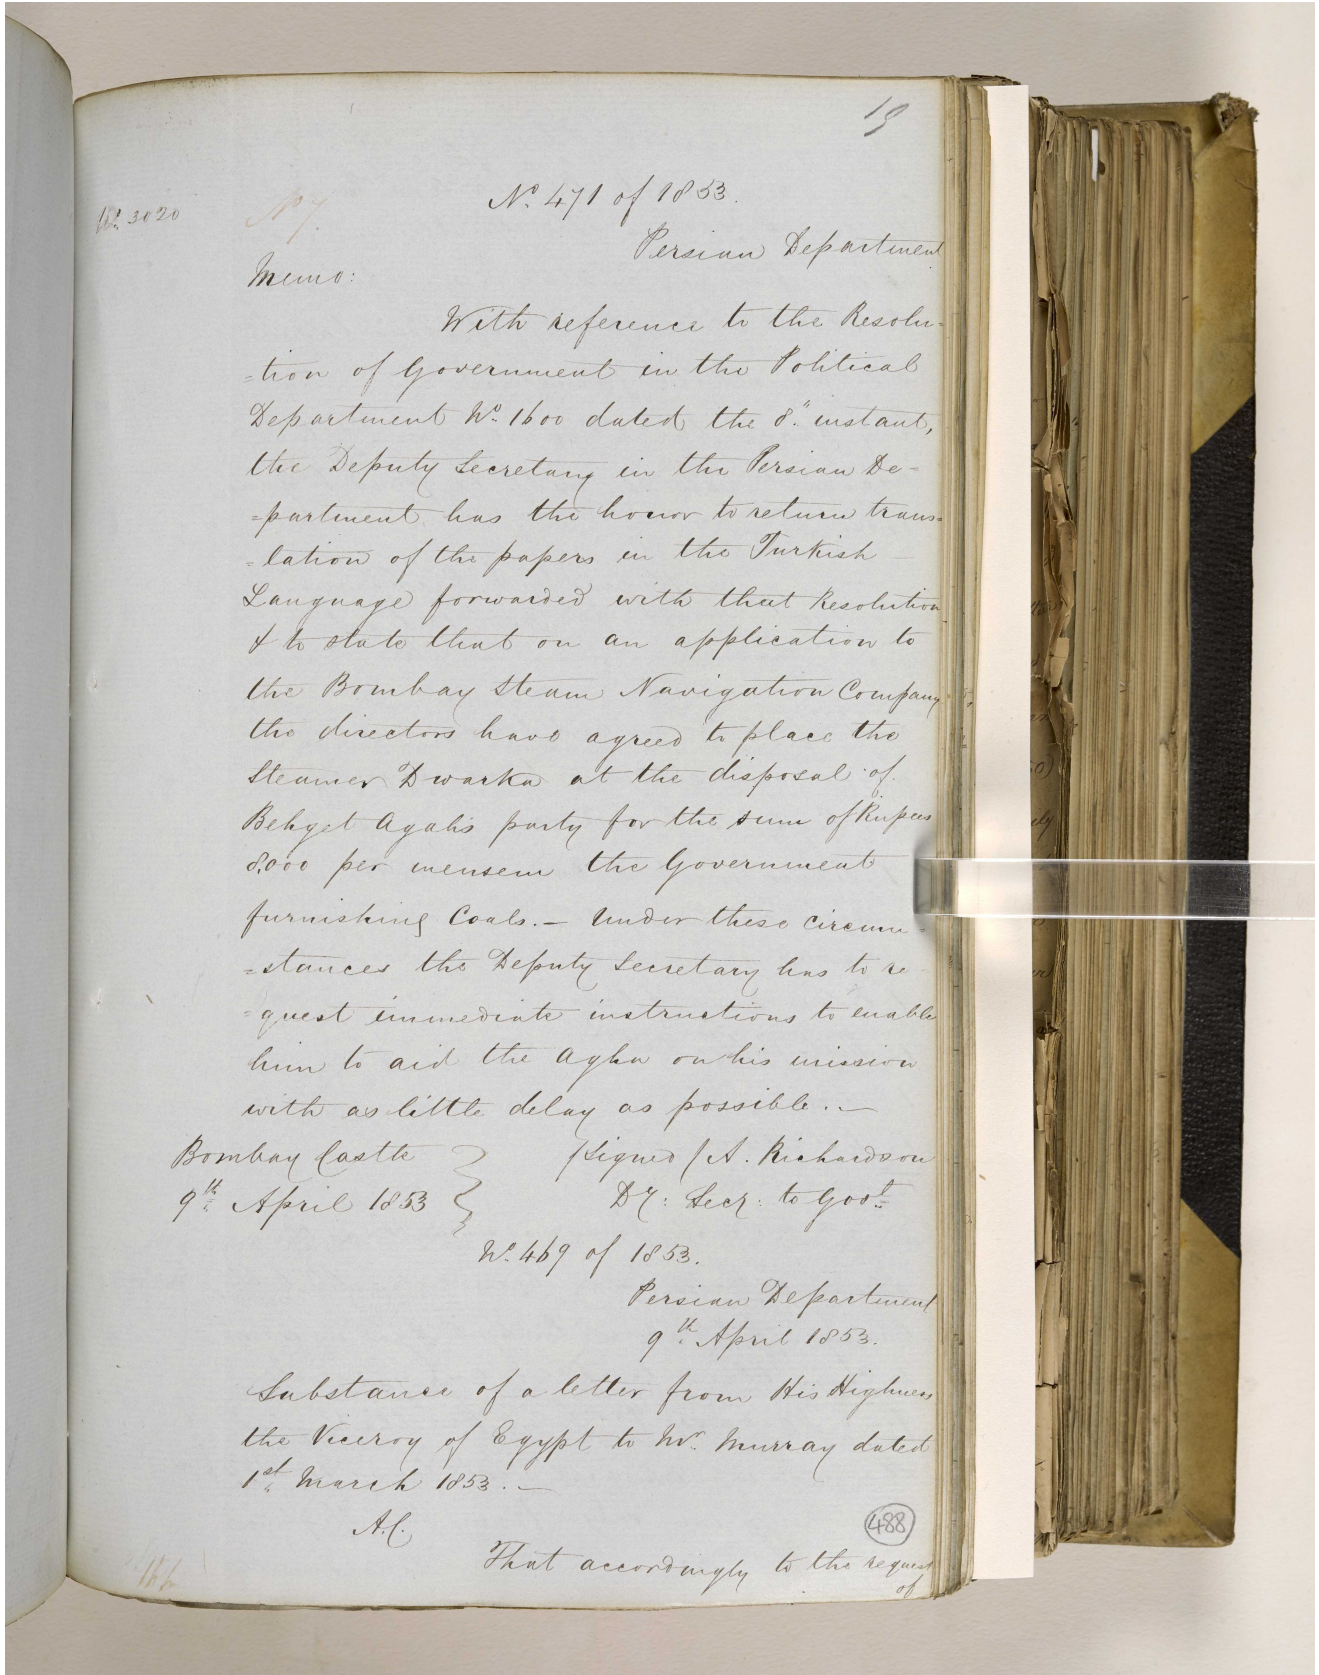 19
No. 471 of 1853.
No. 3020
No 7.
Persian Department
Memo:
With reference to the Resolu-
=tion of Government in the Political
Department No. 1600 dated the 8." instant,
the Deputy Secretary in the Persian De=
=partment has the honor to return trans=
=lation of the papers in the Turkish
Language forwarded with that Resolution
& to state that on an application to
the Bombay Steam Navigation Company
the directors have agreed to place the
Steamer Dwarka at the disposal of
Behget Agahs party for the sum of Rupees
8,000 per mensem the Government
furnishing Coals. — Under these circum=
=stances the Deputy Secretary has to re=
=quest immediate instructions to enable
him to aid the Agha on his mission
with as little delay as possible. —
Bombay Castle
9th April 1853
/Signed/ A. Richardson
Dy: Secy: to Govt.
No. 469 of 1853.
Persian Department
9th April 1853.
Substance of a letter from His Highness
the Viceroy of Egypt to Mr. Murray dated
1st March 1853. —
A.C.
488
That accordingly to the request
of